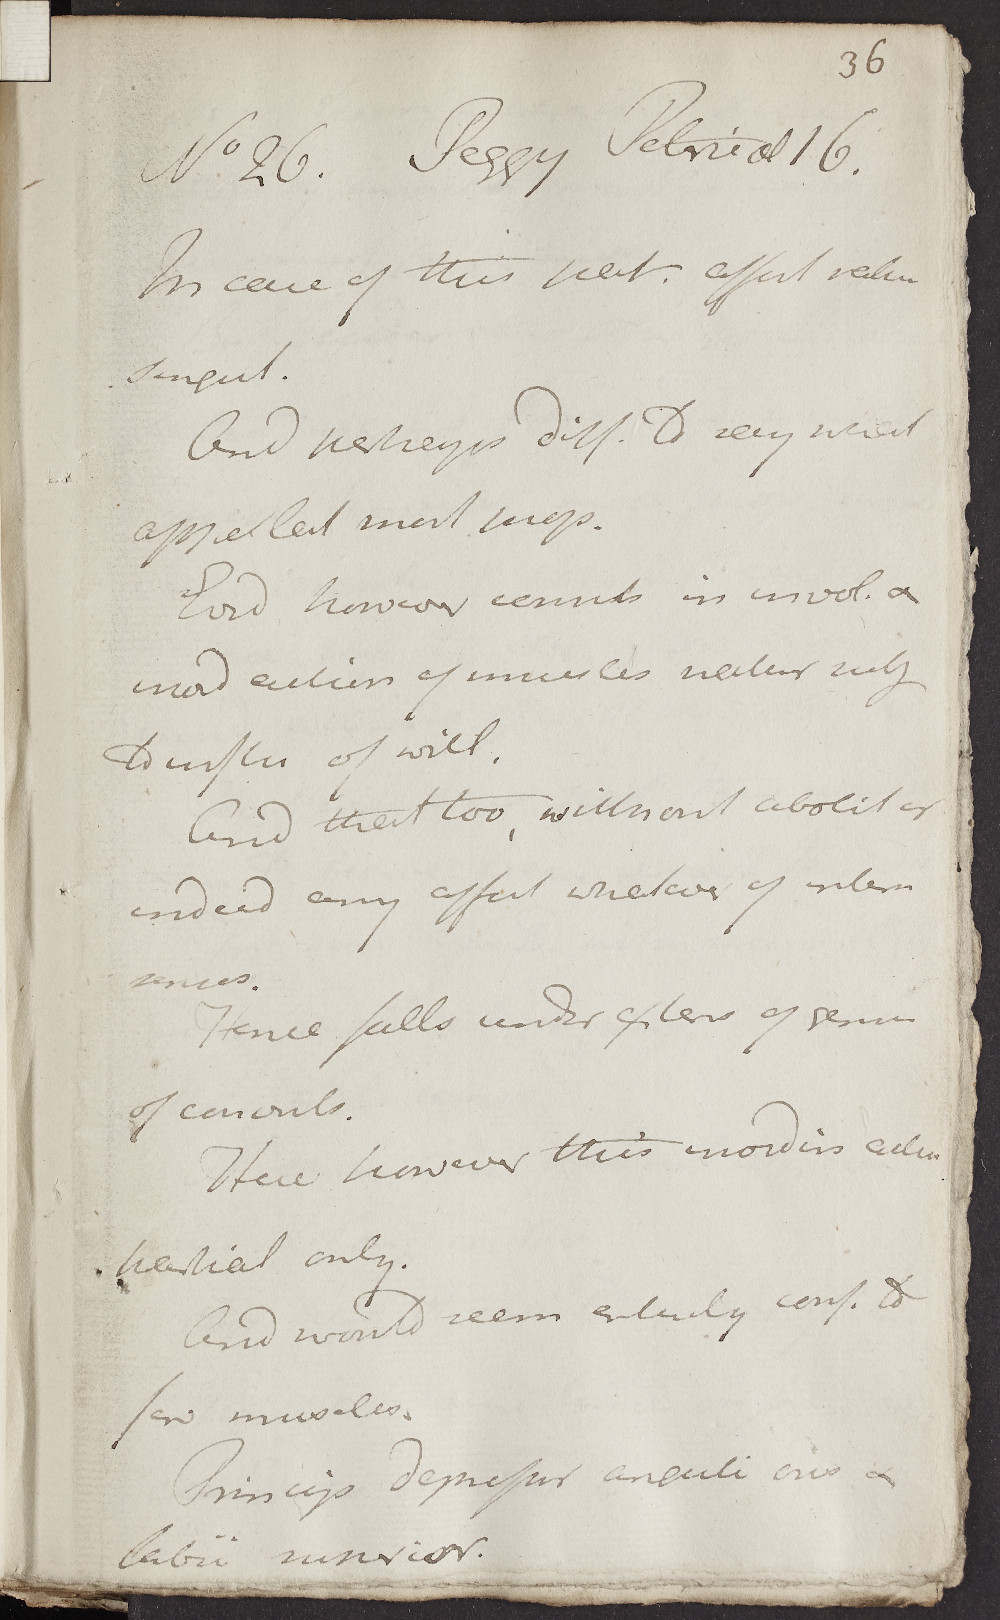 36
No 26. Peggy Petrie æt 16.
In case of this pat. affect rather
singul.
And perhaps diff. to say what
appellat most prop.
Evid however consists in invol. &
inord action of muscles natur subj
to influ of will.
And that too, without abolit or
indeed any affect whatever of intern
senses.
Hence falls under of genus
of convuls.
Here however this inordin action
partial only.
And would seem entirely conf. to
few muscles.
Princip depressor anguli oris &
labii superior.